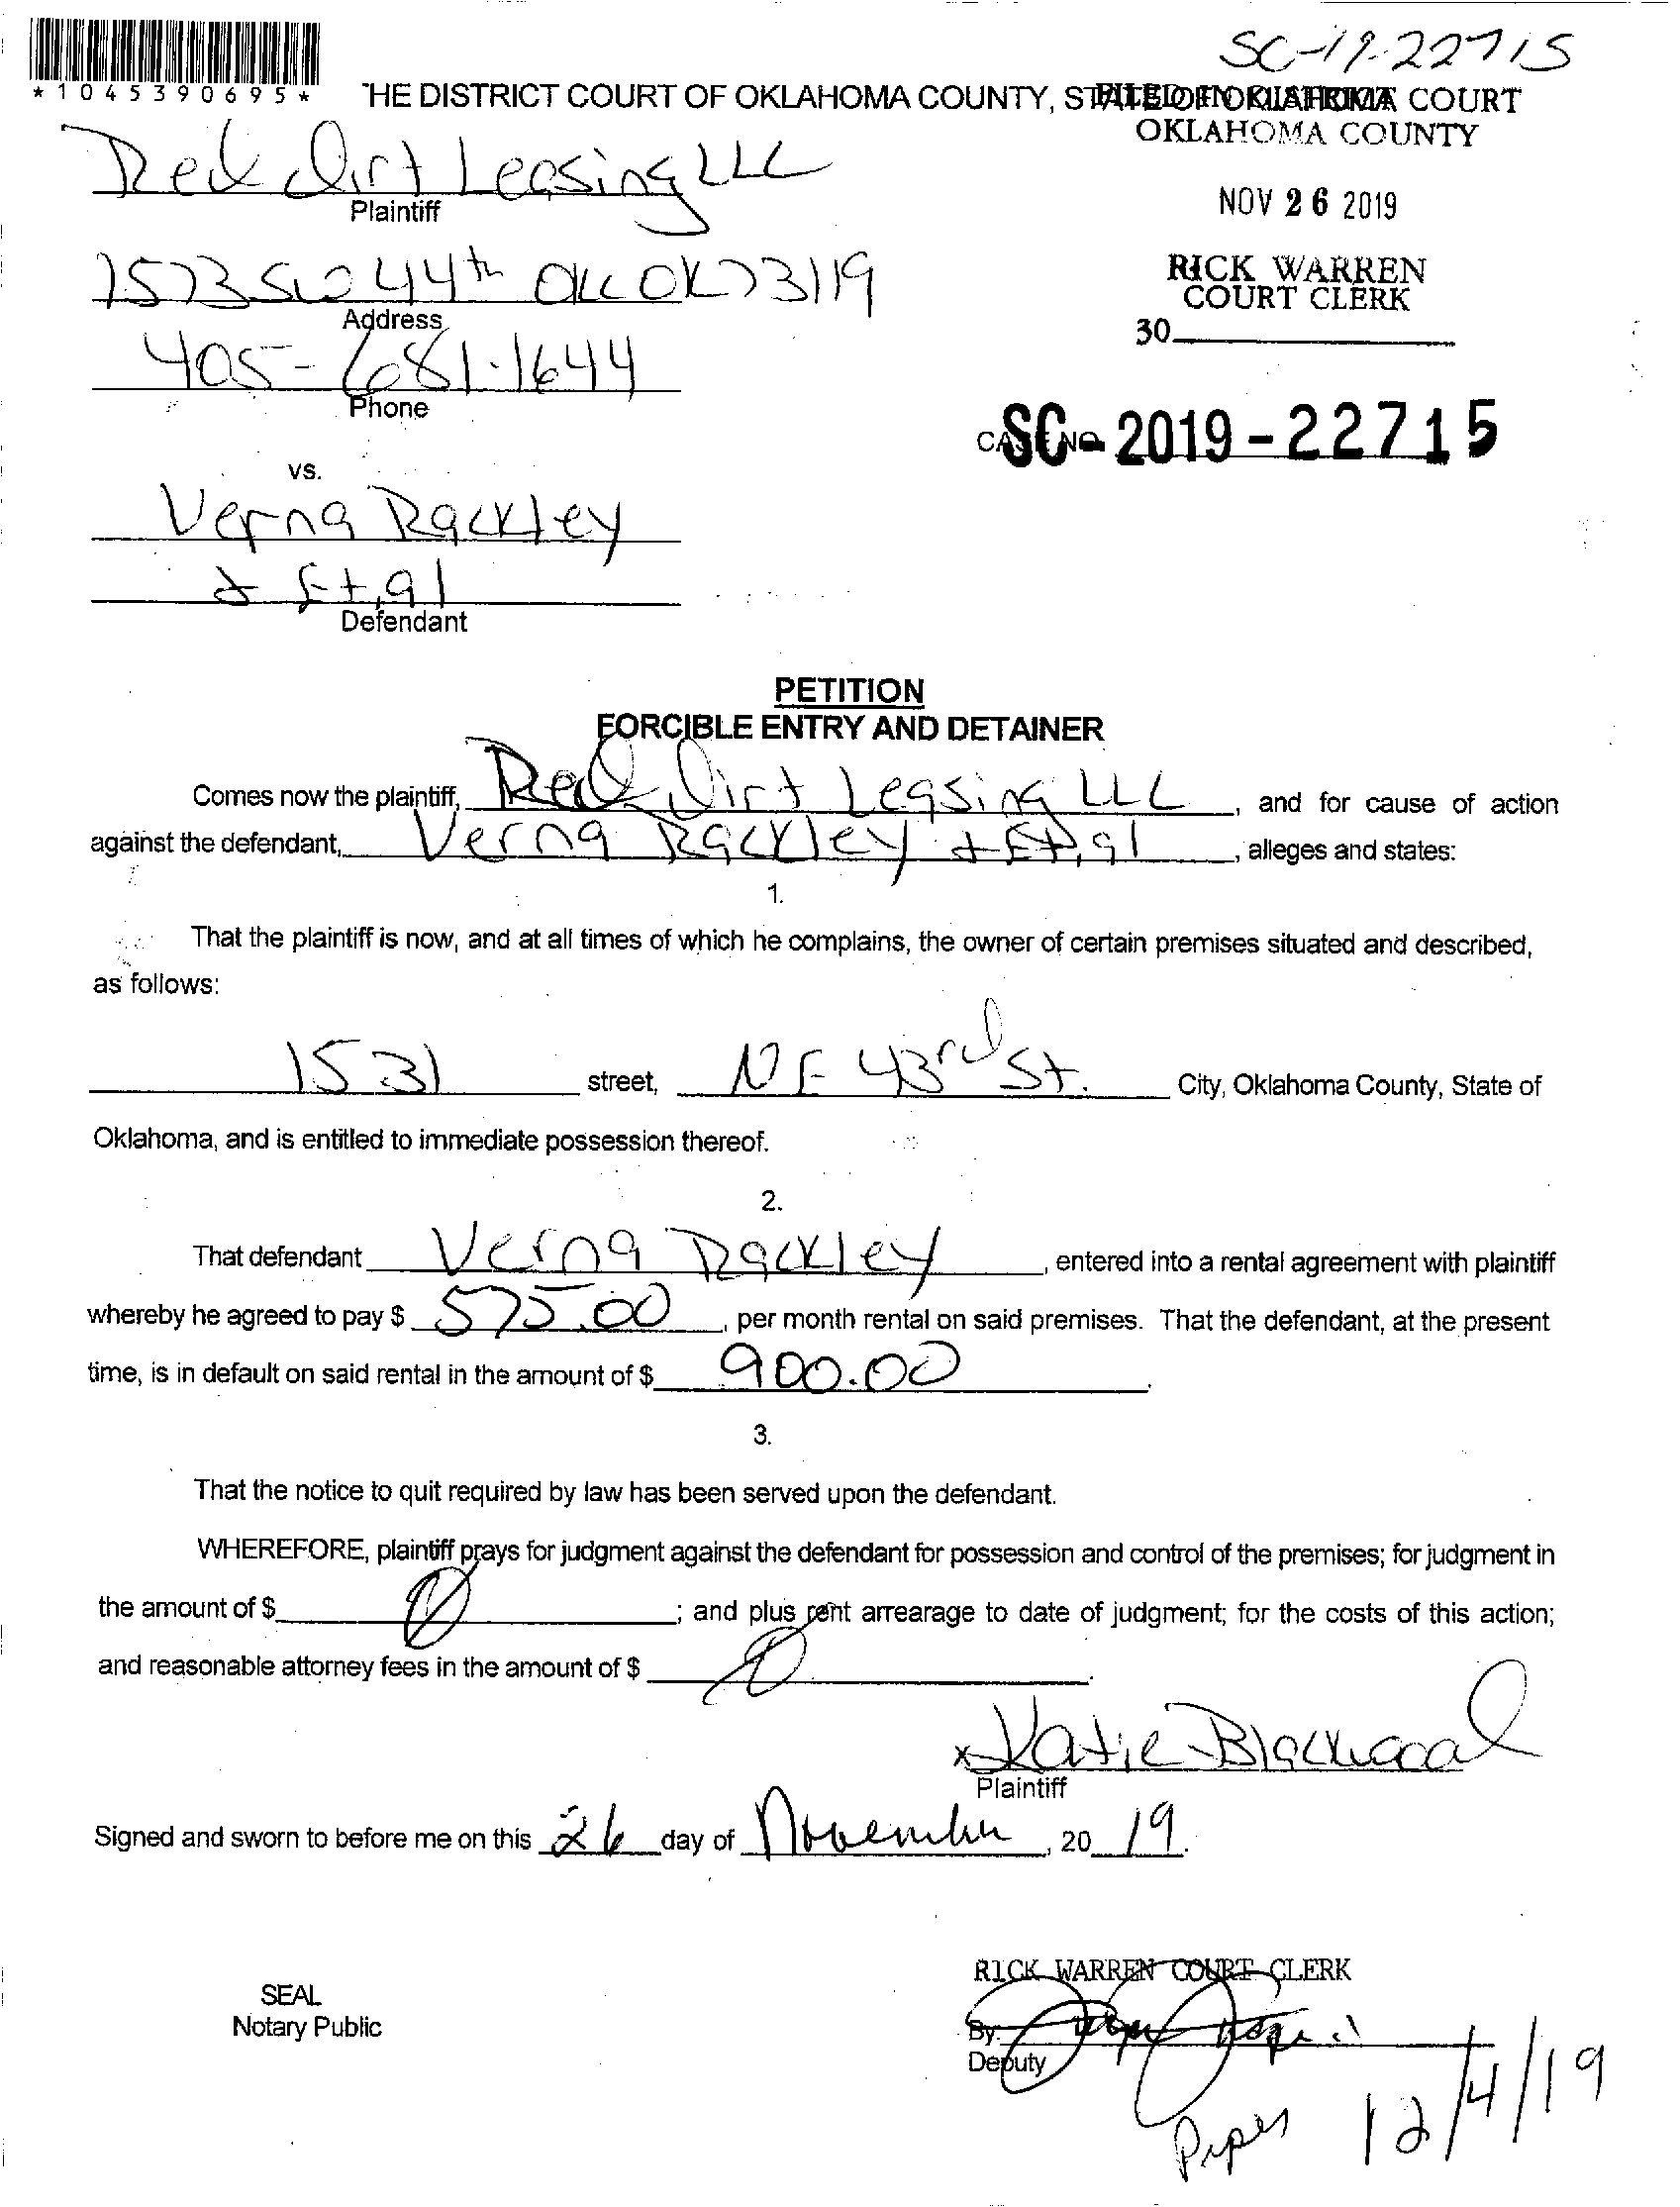 SC-19-22715
*1045390695*
THE DISTRICT COURT OF OKLAHOMA COUNTY, STATE OF OKLAHOMA
FILED IN DISTRICT COURT
OKLAHOMA COUNTY
Red Dirt Leasing LLC
Plaintiff
NOV 26 2019
1573 SW 44th OKC OK 73119
Address
RICK WARREN
COURT CLERK
30
405-681-1644
Phone
CASE NO. SC-2019-22715
vs.
Verna Rackley
& Et,al
Defendant
PETITION
FORCIBLE ENTRY AND DETAINER
Comes now the plaintiff, Red Dirt Leasing LLC, and for cause of action
against the defendant, Verna Rackley & Et,al, alleges and states:
1.
That the plaintiff is now, and at all times of which he complains, the owner of certain premises situated and described,
as follows:
1531 street, NE 43rd St. City, Oklahoma County, State of
Oklahoma, and is entitled to immediate possession thereof.
2.
That defendant Verna Rackley, entered into a rental agreement with plaintiff
whereby he agreed to pay $ 575.00, per month rental on said premises. That the defendant, at the present
time, is in default on said rental in the amount of $ 900.00.
3.
That the notice to quit required by law has been served upon the defendant.
WHEREFORE, plaintiff prays for judgment against the defendant for possession and control of the premises; for judgment in
the amount of $ 0; and plus rent arrearage to date of judgment; for the costs of this action;
and reasonable attorney fees in the amount of $ 0.
x Katie Blackwood
Plaintiff
Signed and sworn to before me on this 26 day of November, 2019.
RICK WARREN COURT CLERK
SEAL
Notary Public
By:
Deputy
12/4/19